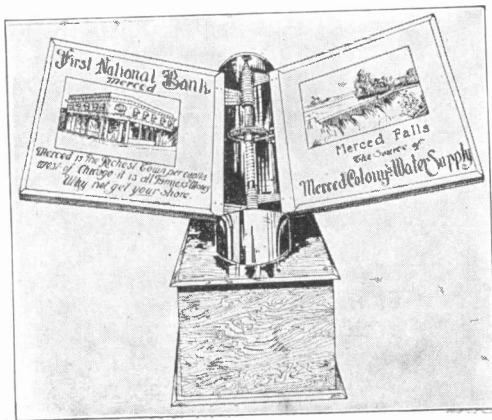 First National Bank
Merced
Merced is the Richest Town per capita
west of Chicago it is all Farmers Money
Why not get your share.
Merced Falls
The Source of
Merced Colony's Water Supply